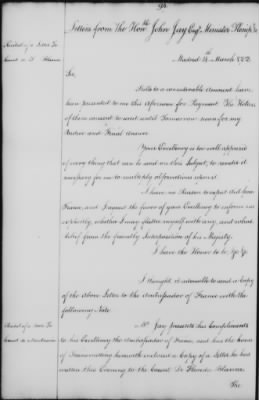 Letters from the Honble. John Jay Esqr. Minister Plenipo:
Madrid 14th March 1782
Sir,
Bills to a considerable Amount have
been presented to me this Afternoon for Payment. The Holders
of them consent to wait until Tomorrow noon for my
Answer and Final Answer.
Your Excellency is too well apprized
of every thing that can be said on this Subject, to render it
necessary for me to multiply observations upon it
I have no Reason to expect Aid from
France, and I request the favor of your Excellency to inform me
explicitly, whether I may flatter myself with any, and what
Relief from the friendly Interposition of his Majesty.
I have the Honor to be, &c &c
I thought it adviseable to send a Copy
of the above Letter to the Ambassador of France with the
following Note.
Mr. Jay presents his Compliments
to his Excellency the Ambassador of France, and has the honor
of Transmitting herewith enclosed a Copy of a Letter he has
written this Evening to the Count De Florida Blanca.
The